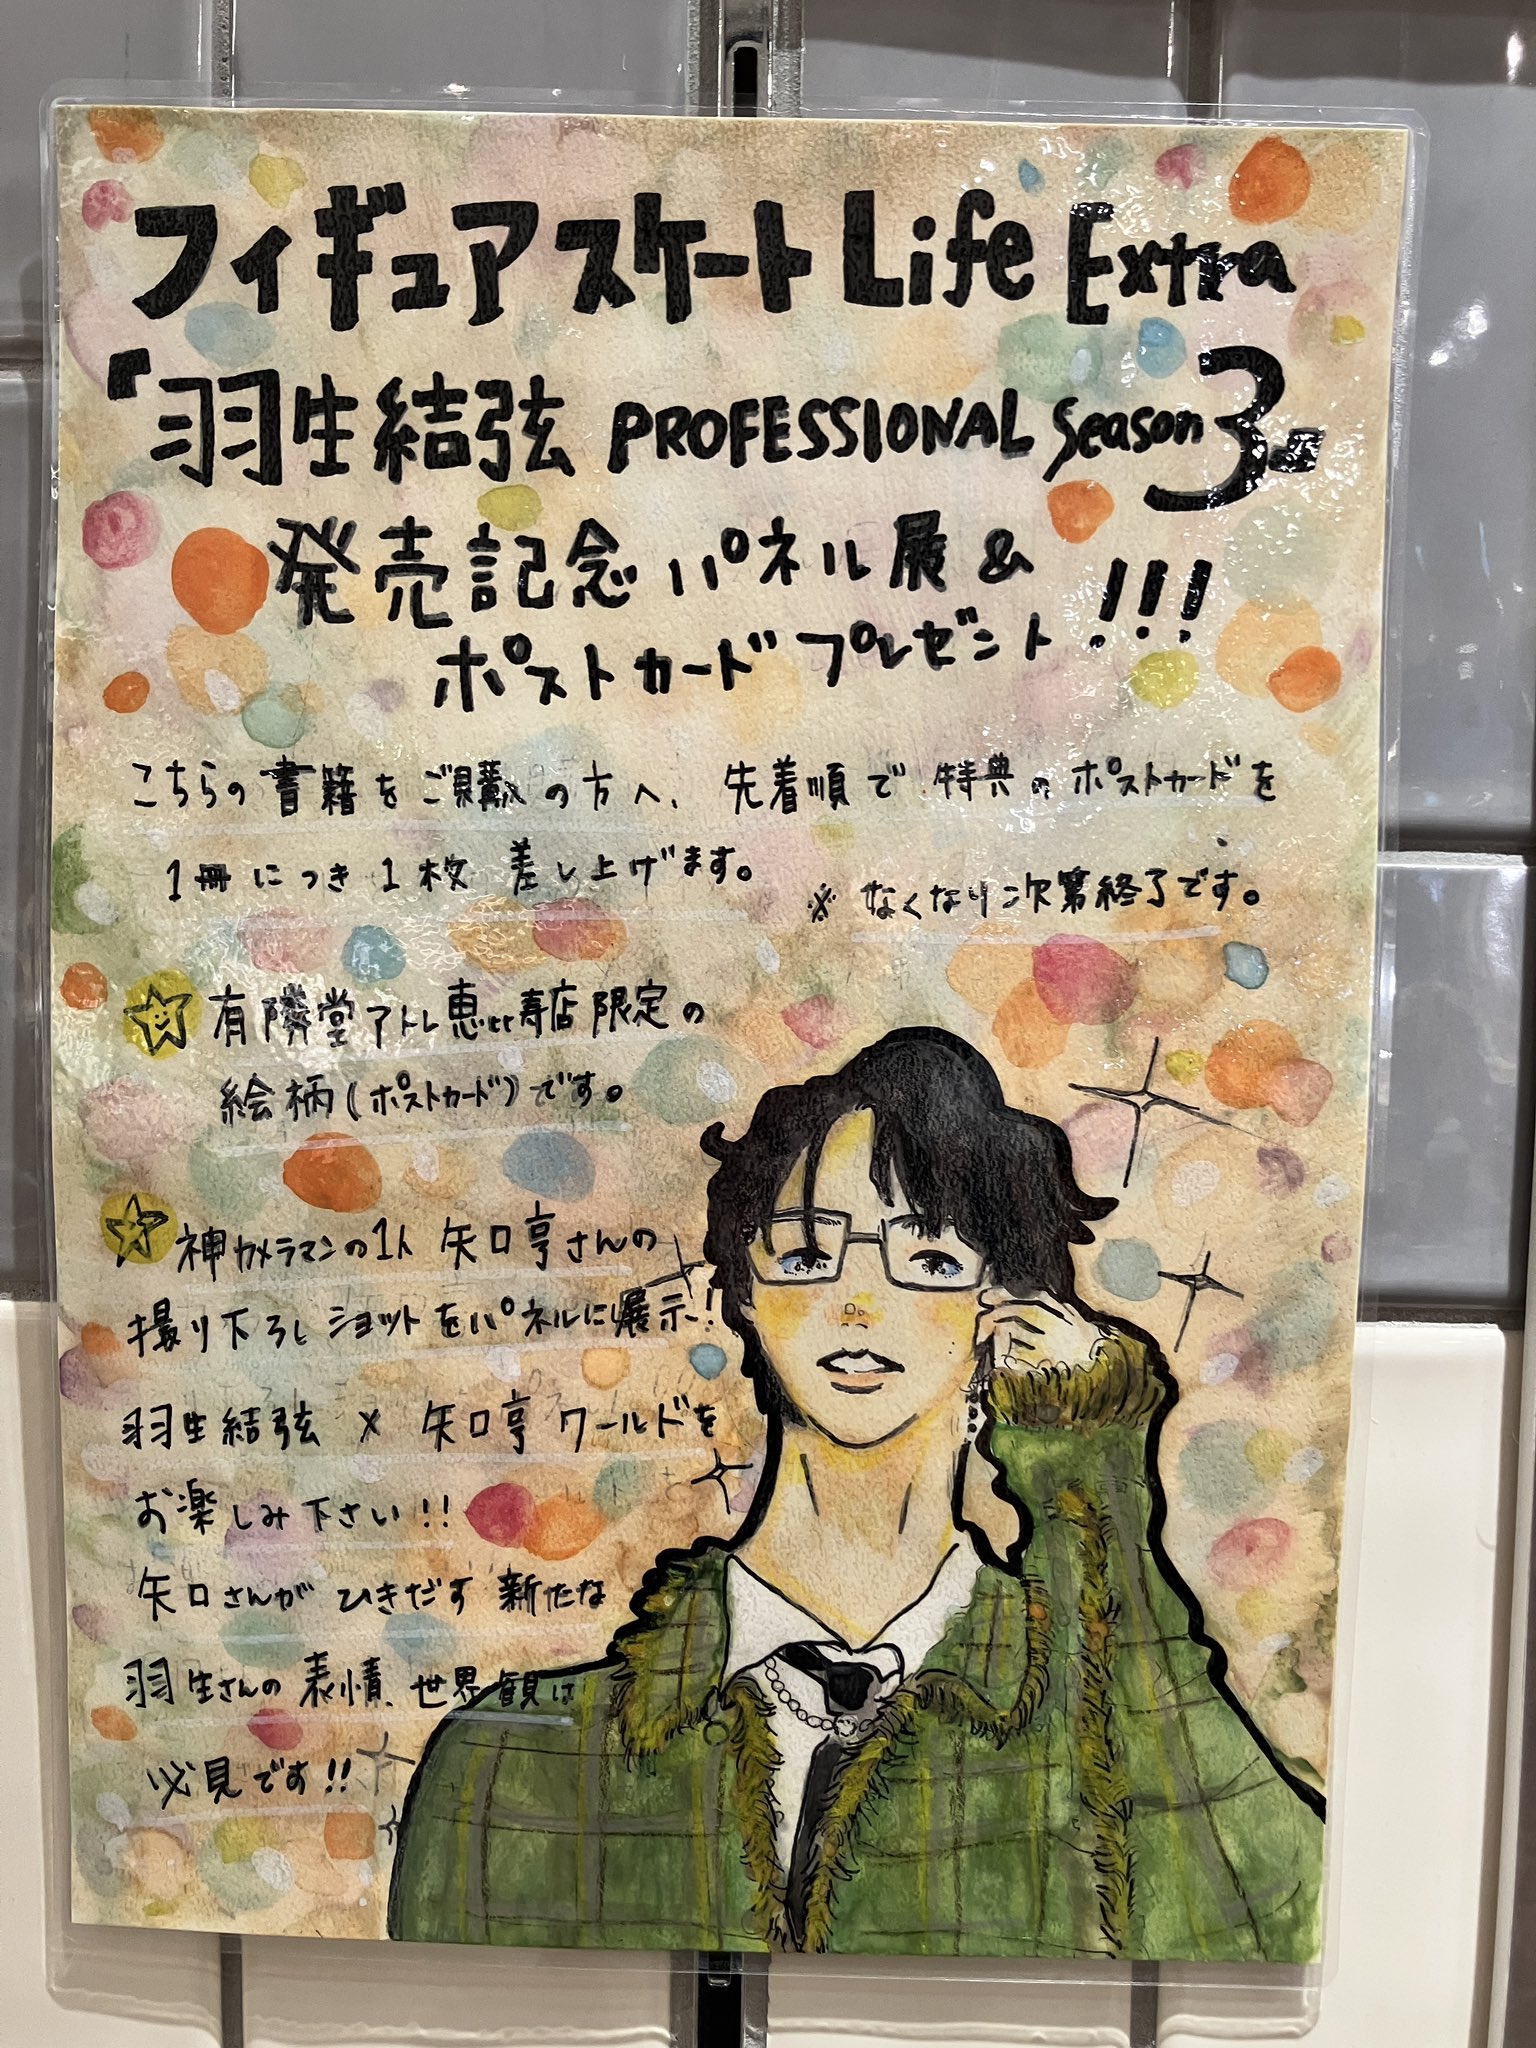 フィギュアスケートLife Extra
「羽生結弦 PROFESSIONAL Season3」
発売記念パネル展&
ポストカードプレゼント!!!
こちらの書籍をご購入の方へ、先着順で特典のポストカードを
1冊につき1枚差し上げます。
※なくなり次第終了です。
有隣堂アトレ恵比寿店限定の
絵柄(ポストカード)です。
神カメラマンの1人 矢口亨さんの
撮り下ろしショットをパネルに展示!
羽生結弦×矢口亨ワールドを
お楽しみ下さい!!
矢口さんがひきだす新たな
羽生さんの表情、世界観は
必見です!!